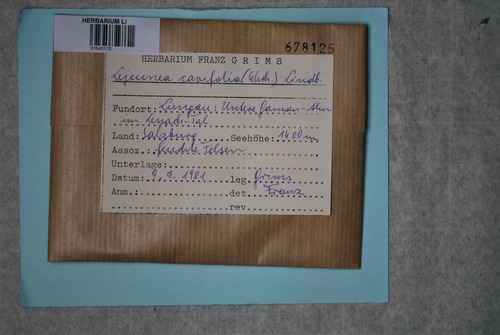 HERBARIUM LI
678125
HERBARIUM FRANZ GRIMS
Lejeunea cavifolia (Ehrh.) Lindb.
Fundort: Lungau: Untere
im Tal
Land: Salzburg Seehöhe: 1400 m
Assoz. feuchte Felsen
Unterlage:
Datum: 9.9.1981 leg. Grims
Anm.: det. Franz
rev.